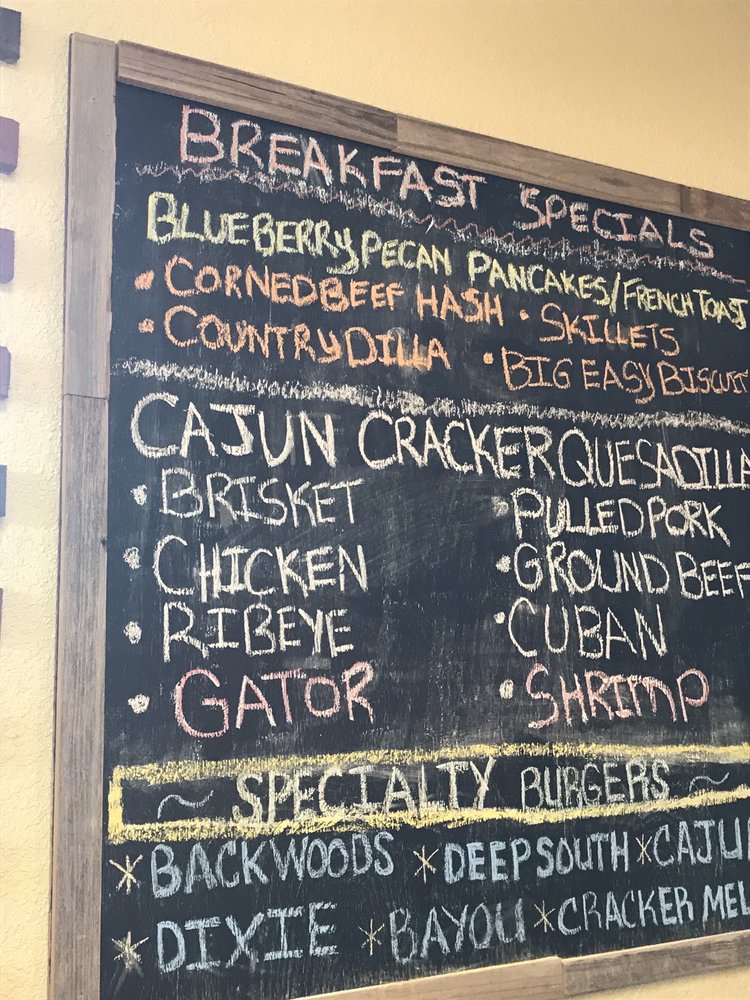 BREAKFAST SPECIALS
BLUEBERRY PECAN PANCAKES/FRENCH TOAST
• CORNEDBEEF HASH • SKILLETS
• COUNTRYDILLA • BIG EASY BISCUIT
CAJUN CRACKER QUESADILLA
• BRISKET • PULLED PORK
• CHICKEN • GROUND BEEF
• RIBEYE • CUBAN
• GATOR • SHRIMP
~ SPECIALTY BURGERS ~
* BACKWOODS * DEEP SOUTH * CAJU
* DIXIE * BAYOU * CRACKER MEL